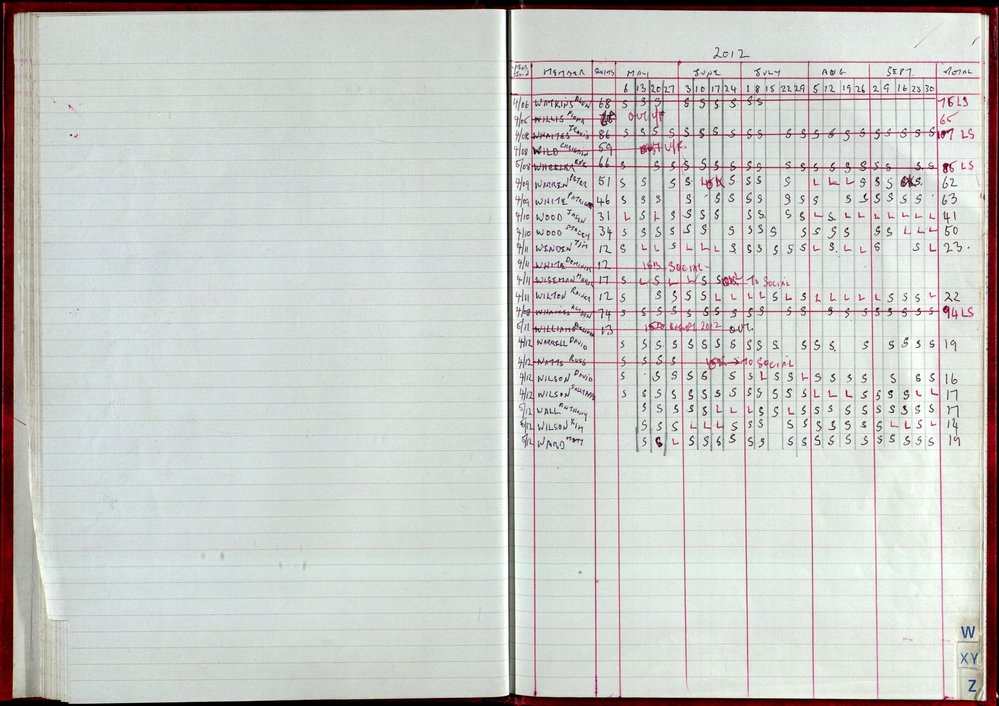 2012
MEMBER SWIMS MAY JUNE JULY AUG SEPT. TOTAL
6 13 20 27 3 10 17 24 1 8 15 22 29 5 12 19 26 2 9 16 23 30
4/06 WATKINS 68 S S S S S S S S S 76 LS
4/05 WILLIS OUT 65
4/08 86 S S S S S S S S S S S S S S S S S S S S S 107 LS
4/08 WILD CHRISTIAN 59 OUT
5/08 WHEELER 66 S S S S S S S S S S S S S S S S S S S 85 LS
4/09 WARREN PETER 51 S S S S S L S S S S L L L S S S S 62
4/09 WHITE 46 S S S S S S S S S S S S S S S S S S 63
4/10 WOOD JASON 31 L S L S S S S S S S S L S L L L L L L 41
4/10 WOOD 34 S S S S S S S S S S S S S S S S L L L 50
4/11 WINDEN TIM 12 S L L S L L L S S S S S S L S L L S S L 23
4/11 WHITE DOMINIC 12 SOCIAL
4/11 WISEMAN 17 S L S L L S S TO SOCIAL
4/11 WILTON 12 S S S S S L L L L S L S L L L L L S S S L 22
4/08 74 94 LS
5/11 WILLIAMS 13 2012 OUT.
4/12 WARRELL DAVID S S S S S S S S S S S S S S S S S S S 19
4/12 WATTS RUSS S S S S TO SOCIAL
4/12 WILSON DAVID S S S S S S S L S S L S S S S S S S 16
4/12 WILSON S S S S S S S S S S S S S L L L S S S S L L 17
5/12 WALL ANTHONY S S S S S L L L S S L S S S S S S S S S S 17
5/12 WILSON KIM S S S L L L S S S S S S S S S S L L S L 14
5/12 WARD MATT S S L S S S S S S S S S S S S S S S S S 19
W
XY
Z